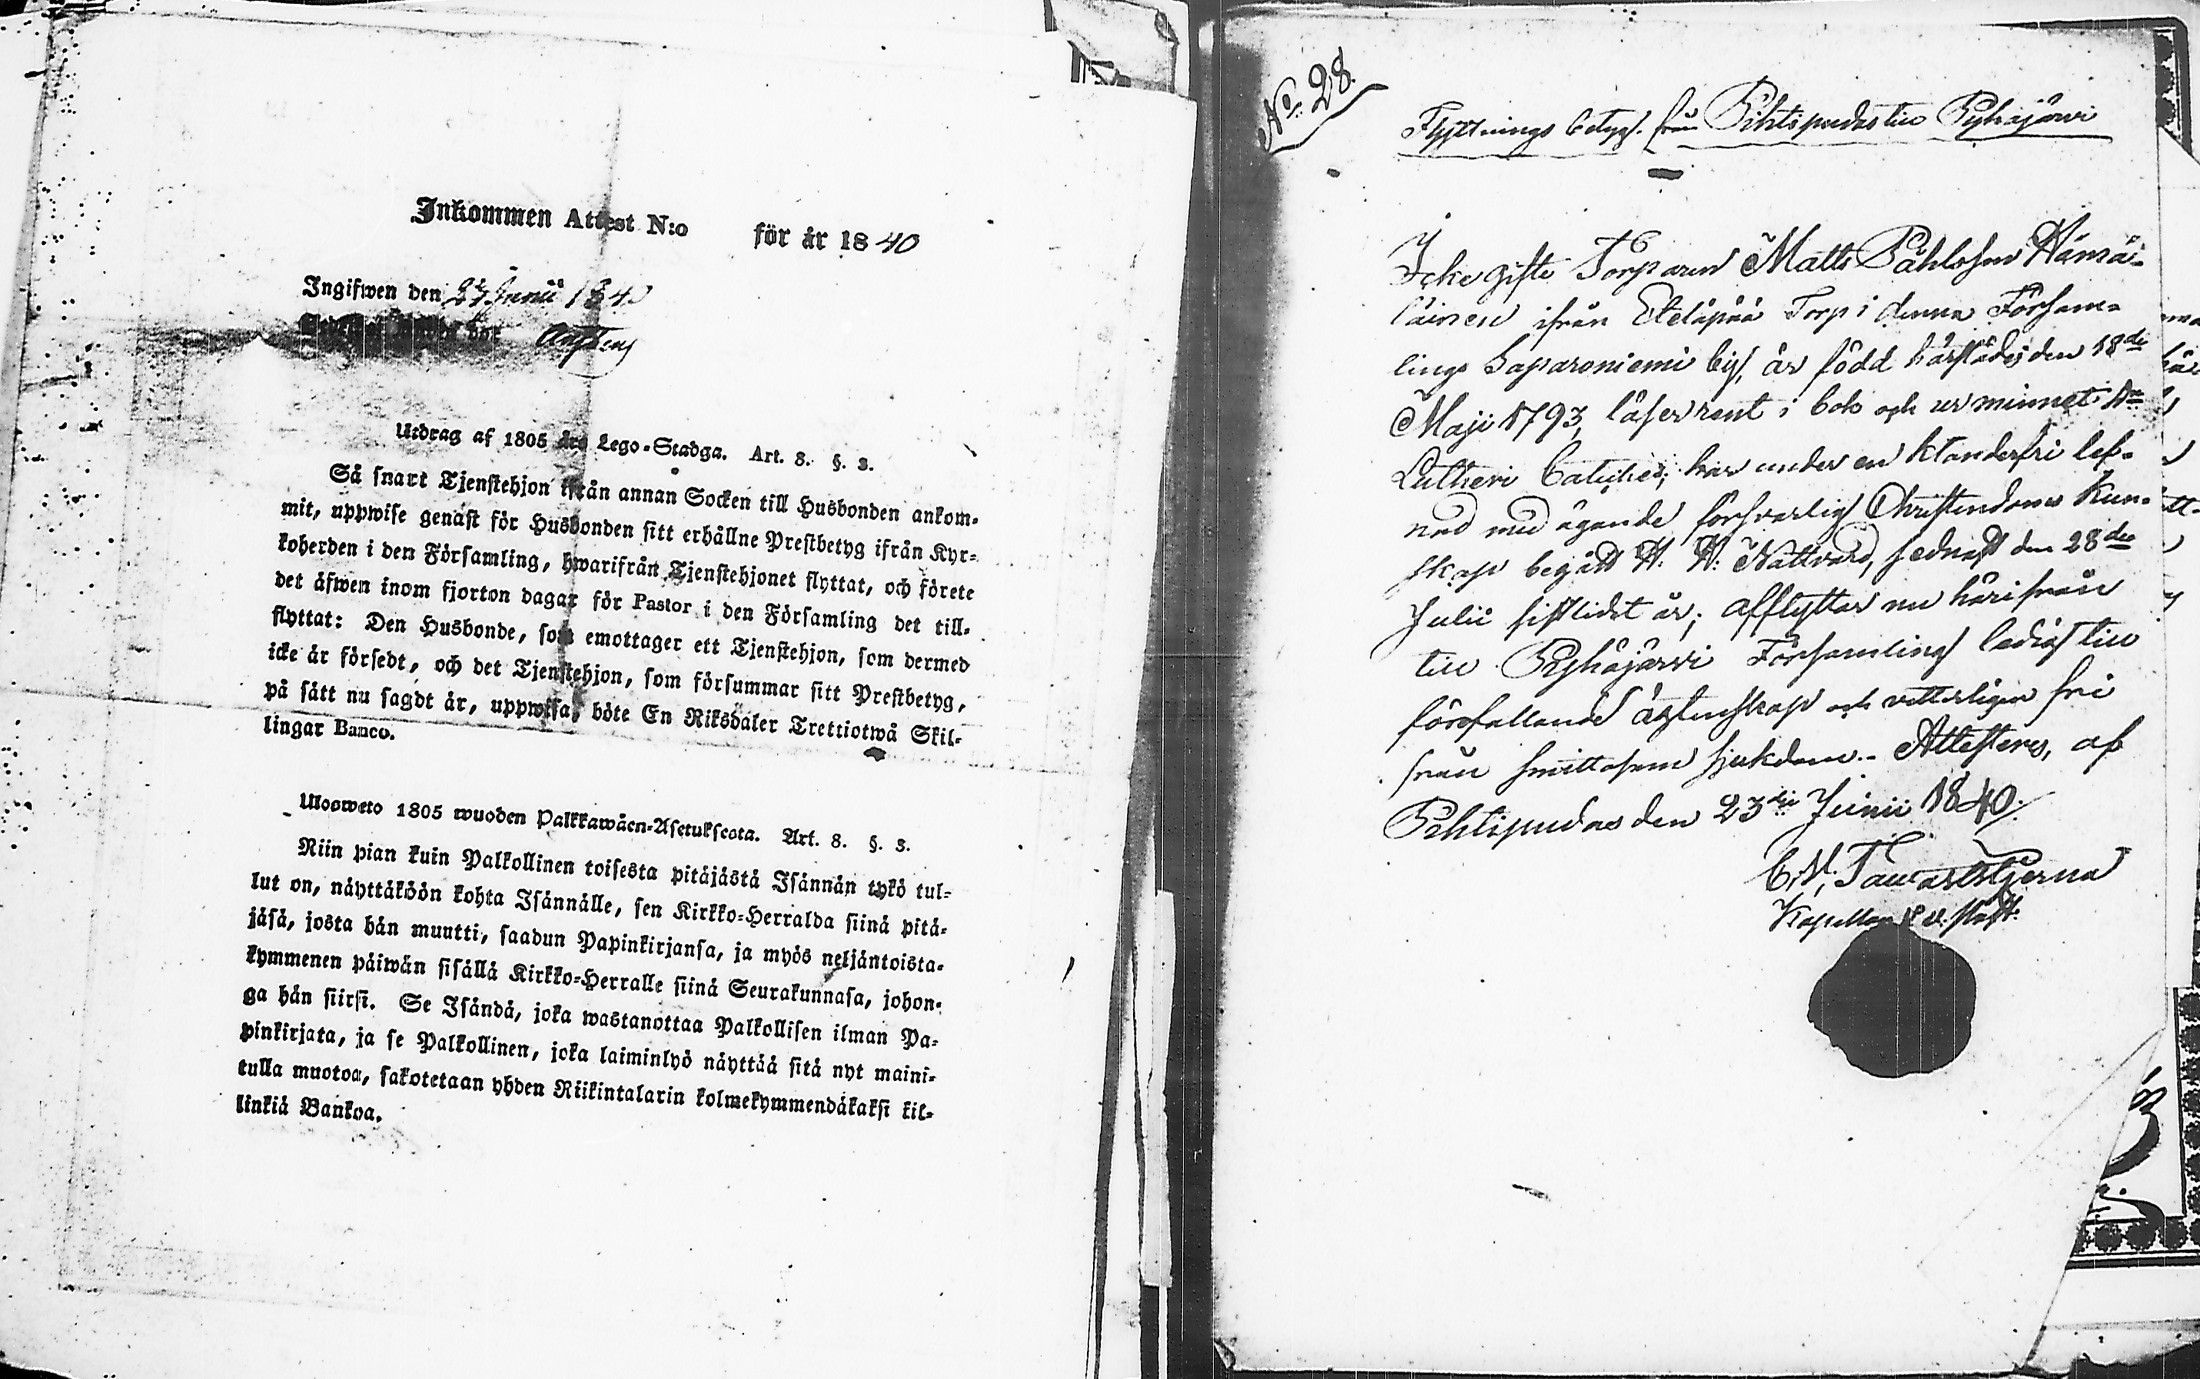 Inkommen Attest N:o för år 1840
Ingifwen den 27 Junii 1840
Utdrag af 1805 års Lego-Stadga. Art. 8. §. 3.
Så snart Tjenstehjon ifrån annan Socken till Husbonden ankom-
mit, uppwise genast för Husbonden sitt erhållne Prestbetyg ifrån Kyr-
koherden i den Församling, hwarifrån Tjenstehjonet flyttat, och förete
det äfwen inom fjorton dagar för Pastor i den Församling det till-
flyttat: Den Husbonde, som emottager ett Tjenstehjon, som dermed
icke är försedt, och det Tjenstehjon, som försummar sitt Prestbetyg,
på sätt nu sagdt är, uppwisa, böte En Riksdaler Trettiotwå Skil-
lingar Banco.
Ulosweto 1805 wuoden Palkkawäen-Asetuksesta. Art. 8. §. 3.
Niin pian kuin Palkollinen toisesta pitäjästä Isännän tykö tul-
lut on, näyttäköön kohta Isännälle, sen Kirkko-Herralda siinä pitä-
jäsä, josta hän muutti, saadun Papinkirjansa, ja myös neljäntoista-
kymmenen päiwän sisällä Kirkko-Herralle siinä Seurakunnasa, johon-
ga hän siirsi. Se Isändä, joka wastanottaa Palkollisen ilman Pa-
pinkirjata, ja se Palkollinen, joka laiminlyö näyttää sitä nyt maini-
tulla muotoa, sakotetaan yhden Riikintalarin kolmekymmendäkaksi kil-
linkiä Bankoa.
No 28.
Flyttnings betyg från Pihtipudas till Pyhäjärvi
Icke gifte Torparen Matts Påhlsson Hämä-
läinen ifrån Eteläpää Torp i denna Försam-
lings Saparoniemi by, är född härstädes den 18de
Maji 1793, läser rent i bok och ur minnet Dr
Lutheri Cateches; har under en klanderfri lef-
nad med ägande försvarlig Christendoms kun-
skap begått H. H. Nattvard, sednast den 28de
Julii sistlidet år; afflyttar nu härifrån
till Pyhäjärvi Församling ledig till
förefallande äktenskap och vetterligen fri
från smittosam sjukdom. Attesteres, af
Pihtipudas den 23die Junii 1840.
C. N. Tawaststjerna
Kapellan